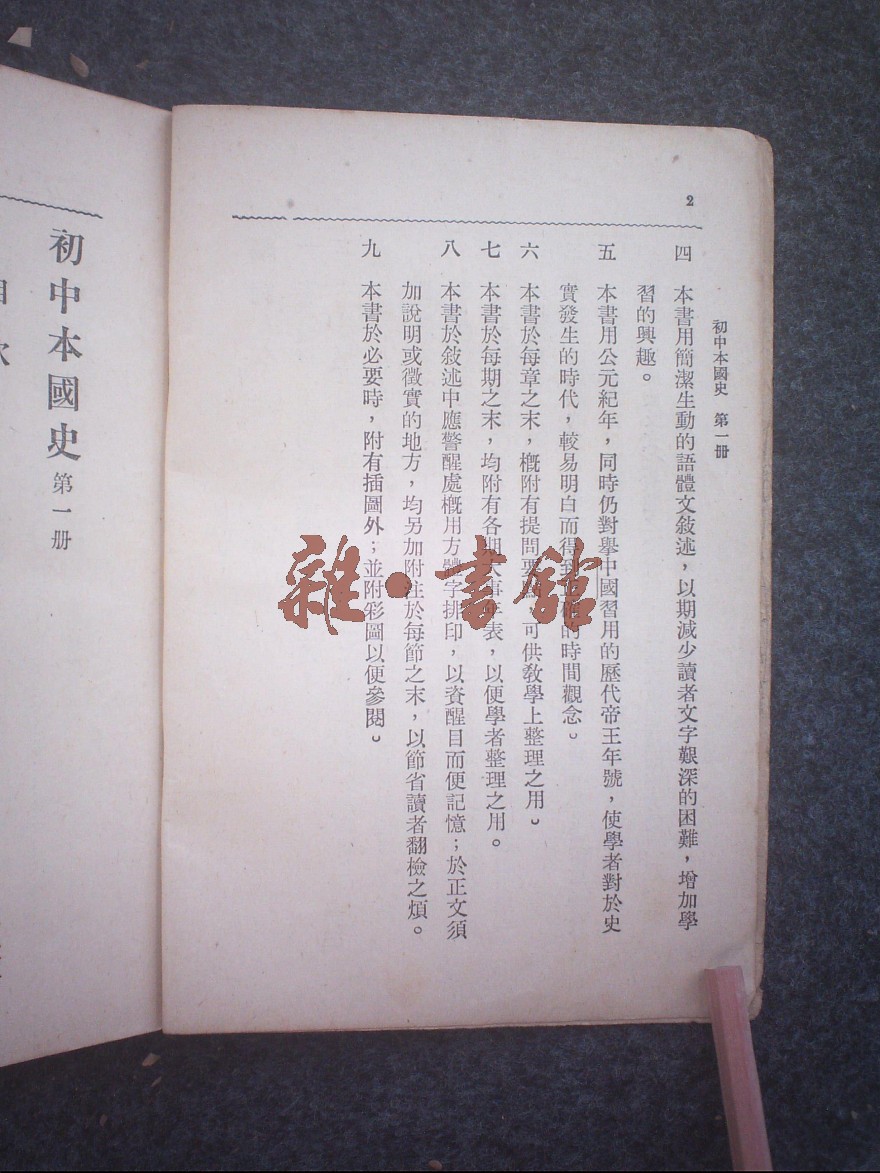 2
初中本國史 第一册
四 本書用簡潔生動的語體文敍述，以期減少讀者文字艱深的困難，增加學
習的興趣。
五 本書用公元紀年，同時仍對擧中國習用的歷代帝王年號，使學者對於史
實發生的時代，較易明白而得到的時間觀念。
六 本書於每章之末，槪附有提問要可供敎學上整理之用。
七 本書於每期之末，均附有各期大事年表，以便學者整理之用。
八 本書於敍述中應警醒處槪用方體字排印，以資醒目而便記憶；於正文須
加說明或徵實的地方，均另加附註於每節之末，以節省讀者翻檢之煩。
九 本書於必要時，附有插圖外；並附彩圖以便參閱。
雜·書館
初中本國史 第一册